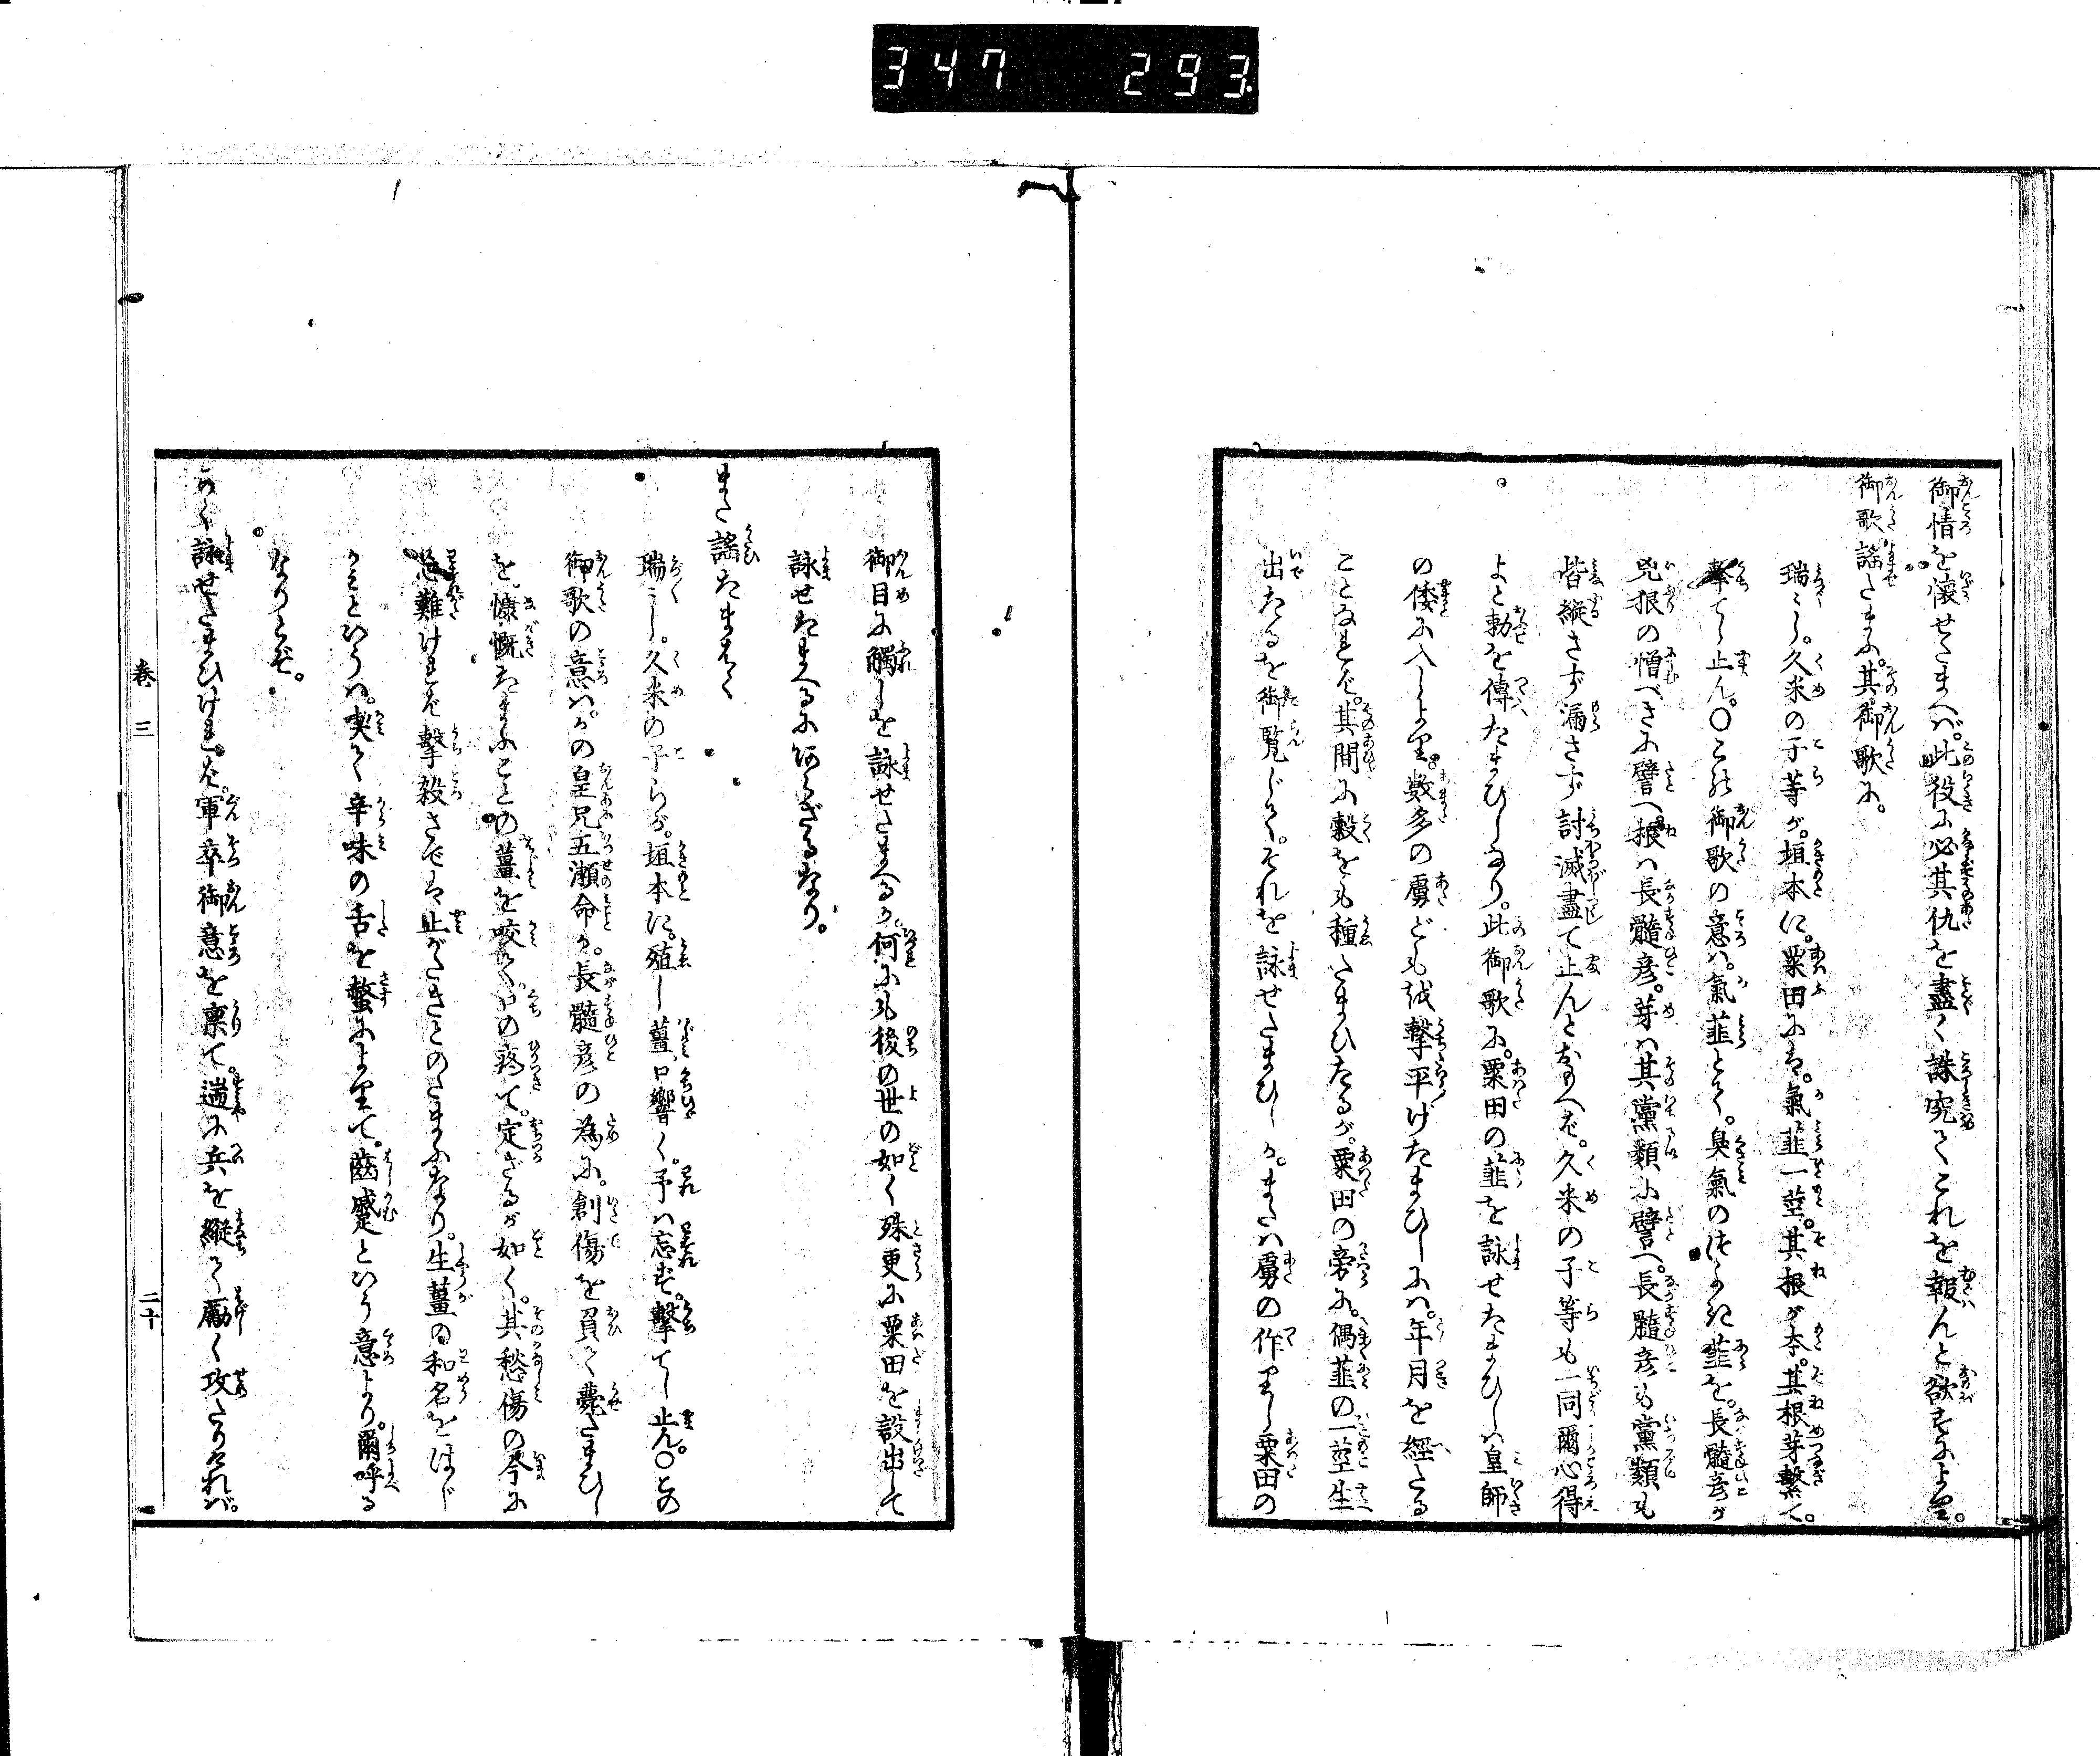 347 293
御情を懐せたまへば。此役に必其仇を盡く誅究てこれを報んと欲すによりて。
御歌謡たまふ。其御歌に。
瑞〻し。久米の子等が。垣本に。粟田には。氣韮一莖。其根が本。其根芽繋て。
撃てし止ん。〇この御歌の意は。氣韮とは。臭氣のつよき韮を。長髓彦が
兇根の憎べきに譬へ。根は長髓彦。芽は其黨類に譬へ。長髓彦も黨類も
皆縱さず漏さず討滅盡て止んとなれば。久米の子等も一同爾心得
よと勅を傳たまひしなり。此御歌に。粟田の韮を詠せたまひしは皇師
の倭に入しより。数多の虜ども誠撃平げたまひしには。年月を經たる
ことなれば。其間に穀をも種たまひたるが。粟田の旁に。偶韮の一莖生
出たるを御覧じて。それを詠せたまひしか。または虜の作りし粟田の
御目に觸しを詠せたまへるか。何にも後の世の如く殊更に粟田を設出して
詠せたまへるにあらざるなり。
また謡たまはく
瑞〻し。久米の子らが。垣本に。殖し薑。口響く。予は忘ず。撃てし止ん。〇この
御歌の意は。かの皇兄五瀬命か。長髓彦の為に。創傷を負て薨たまひし
を。慷慨たまふことの薑を咬て。口の疼て。定ざるが如く。其愁傷の今に
忘難ければ撃殺さでは止がたきとのたまふなり。生薑の和名をはじ
かみといふは。喫て辛味の舌を螫によりて。齒蹙といふ意より。爾呼る
なりとぞ。
かく詠せたまひければ。軍卒御意を稟て。遄に兵を縱て勵く攻たりければ。
巻三 二十